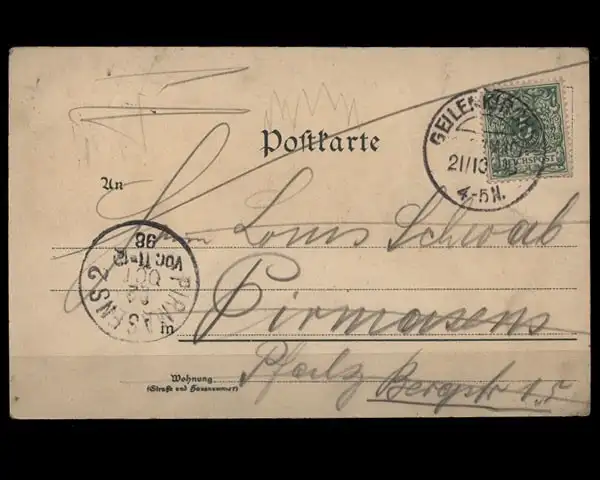 Postkarte
GEILENKIRCHEN
21/10 98
4-5N.
5
REICHSPOST
An
Louis Schwab
PIRMASENS 2
22
OCT
Vor.11-12
98
in Pirmasens
Pfalz Bergstr 15
Wohnung
(Straße und Hausnummer)